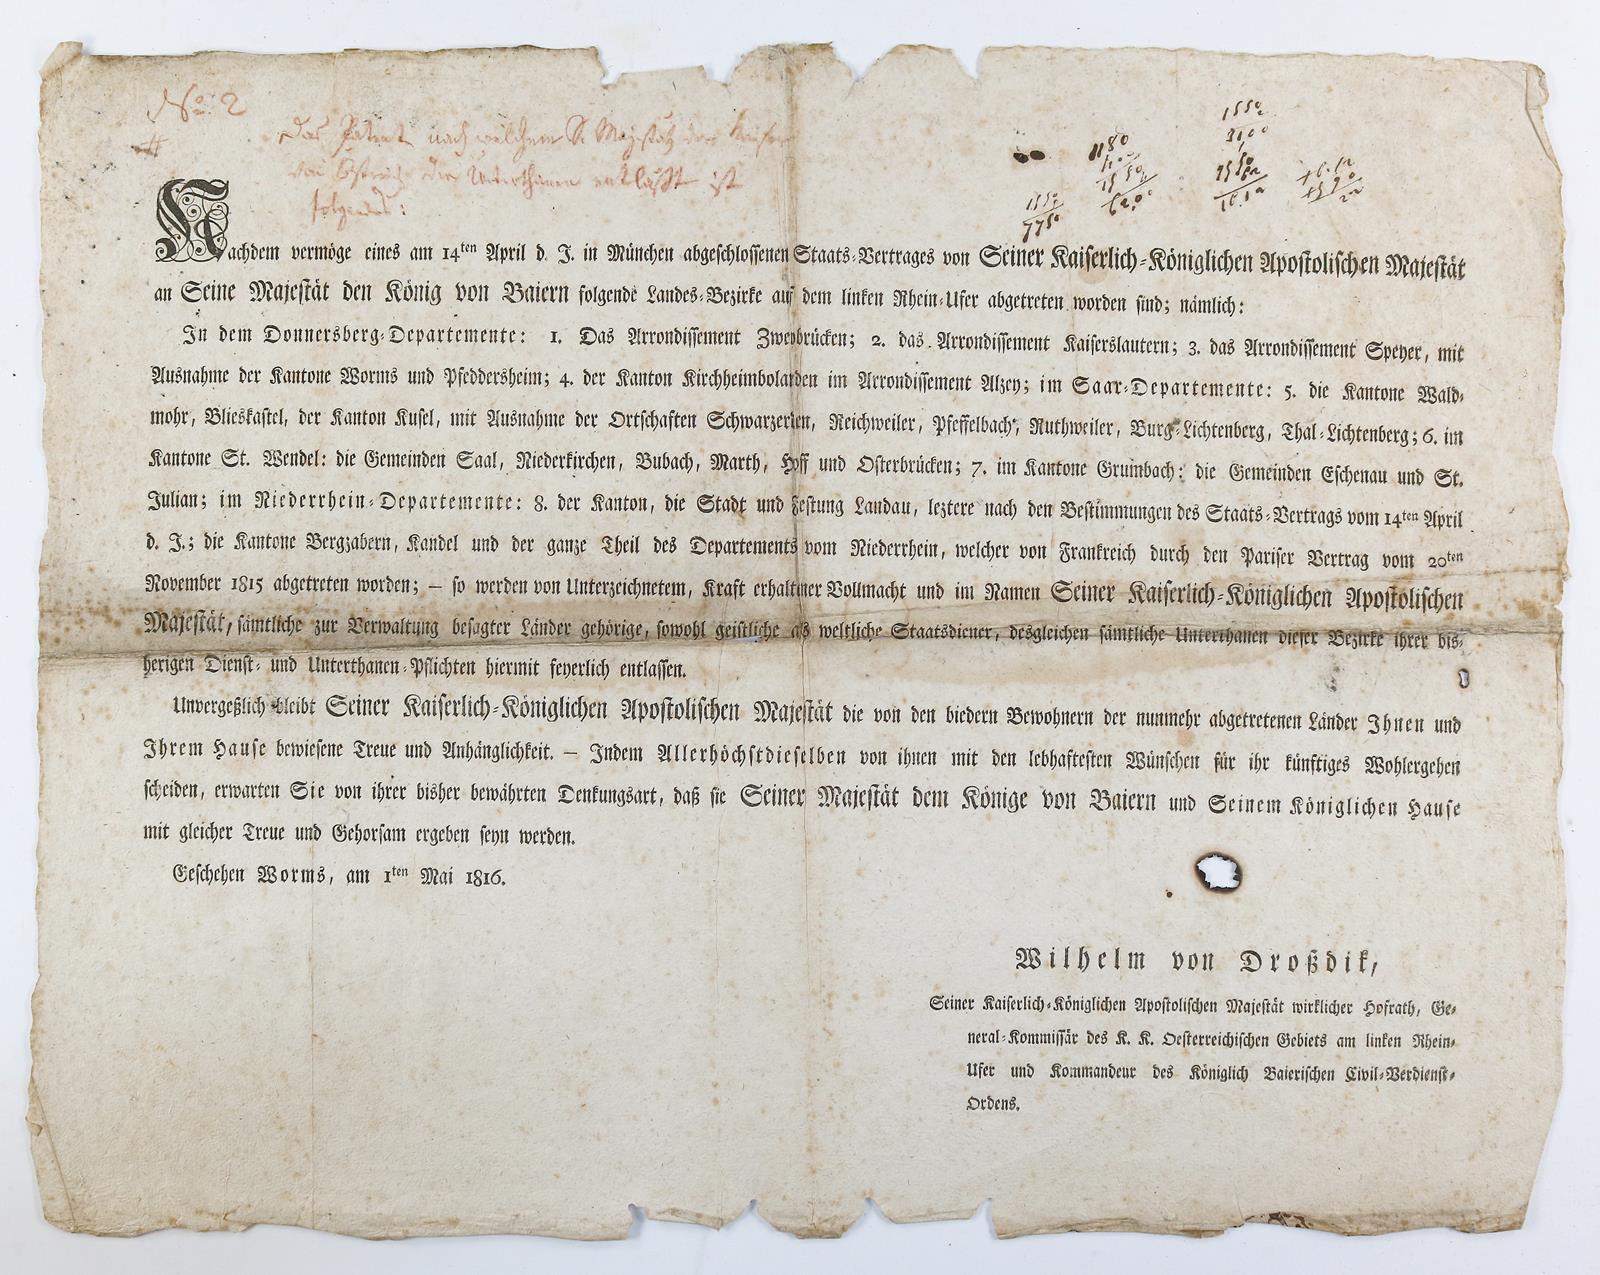 No. 2
Das Patent nach welchem Sr. Majestät der Kaiser
von Östreich die Unterthanen entläßt ist
folgendes:
1180
1550
7750
1550
3100
Nachdem vermöge eines am 14ten April d. J. in München abgeschlossenen Staats-Vertrages von Seiner Kaiserlich-Königlichen Apostolischen Majestät
an Seine Majestät den König von Baiern folgende Landes-Bezirke auf dem linken Rhein-Ufer abgetreten worden sind; nämlich:
In dem Donnersberg-Departemente: 1. Das Arrondissement Zweybrücken; 2. das Arrondissement Kaiserslautern; 3. das Arrondissement Speyer, mit
Ausnahme der Kantone Worms und Pfeddersheim; 4. der Kanton Kirchheimbolanden im Arrondissement Alzey; im Saar-Departemente: 5. die Kantone Wald-
mohr, Blieskastel, der Kanton Kusel, mit Ausnahme der Ortschaften Schwarzerden, Reichweiler, Pfeffelbach, Ruthweiler, Burg-Lichtenberg, Thal-Lichtenberg; 6. im
Kantone St. Wendel: die Gemeinden Saal, Niederkirchen, Bubach, Marth, Hoff und Osterbrücken; 7. im Kantone Grumbach: die Gemeinden Eschenau und St.
Julian; im Niederrhein-Departemente: 8. der Kanton, die Stadt und Festung Landau, leztere nach den Bestimmungen des Staats-Vertrags vom 14ten April
d. J.; die Kantone Bergzabern, Kandel und der ganze Theil des Departements vom Niederrhein, welcher von Frankreich durch den Pariser Vertrag vom 20ten
November 1815 abgetreten worden; — so werden von Unterzeichnetem, Kraft erhaltner Vollmacht und im Namen Seiner Kaiserlich-Königlichen Apostolischen
Majestät, sämtliche zur Verwaltung besagter Länder gehörige, sowohl geistliche als weltliche Staatsdiener, desgleichen sämtliche Unterthanen dieser Bezirke ihrer bis-
herigen Dienst- und Unterthanen-Pflichten hiermit feyerlich entlassen.
Unvergeßlich bleibt Seiner Kaiserlich-Königlichen Apostolischen Majestät die von den biedern Bewohnern der nunmehr abgetretenen Länder Ihnen und
Ihrem Hause bewiesene Treue und Anhänglichkeit. — Indem Allerhöchstdieselben von ihnen mit den lebhaftesten Wünschen für ihr künftiges Wohlergehen
scheiden, erwarten Sie von ihrer bisher bewährten Denkungsart, daß sie Seiner Majestät dem Könige von Baiern und Seinem Königlichen Hause
mit gleicher Treue und Gehorsam ergeben seyn werden.
Geschehen Worms, am 1ten Mai 1816.
Wilhelm von Droßdik,
Seiner Kaiserlich-Königlichen Apostolischen Majestät wirklicher Hofrath, Ge-
neral-Kommissär des K. K. Oesterreichischen Gebiets am linken Rhein-
Ufer und Kommandeur des Königlich Baierischen Civil-Verdienst-
Ordens.